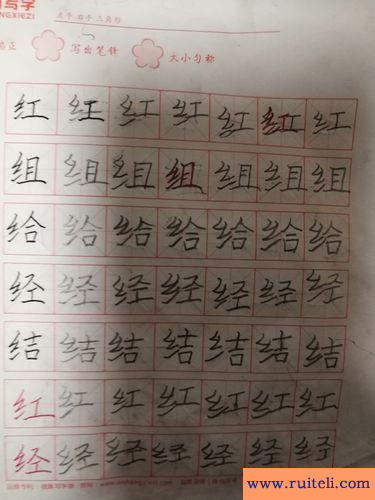 写字
点子 右手 三角形
端正 写出笔锋 大小匀称
红 红 红 红 红 红 红
组 组 组 组 组 组 组
给 给 给 给 给 给 给
经 经 经 经 经 经 经
结 结 结 结 结 结 结
红 红 红 红 红 红 红
经 经 经 经 经 经 经
www.ruiteli.com